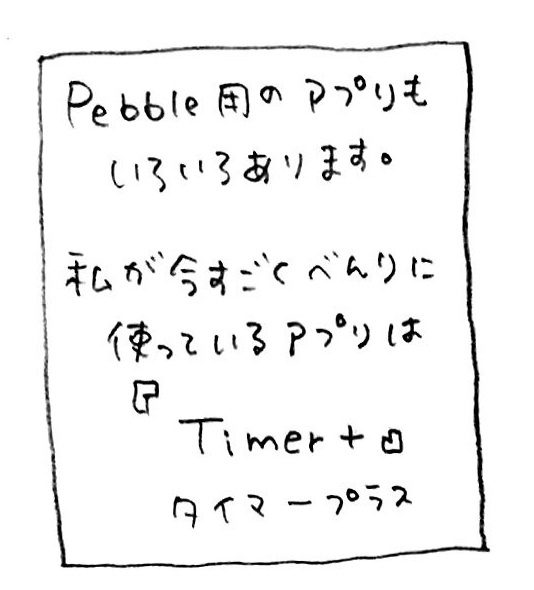 Pebble用のアプリも
いろいろあります。
私が今すごくべんりに
使っているアプリは
『
Timer+』
タイマープラス